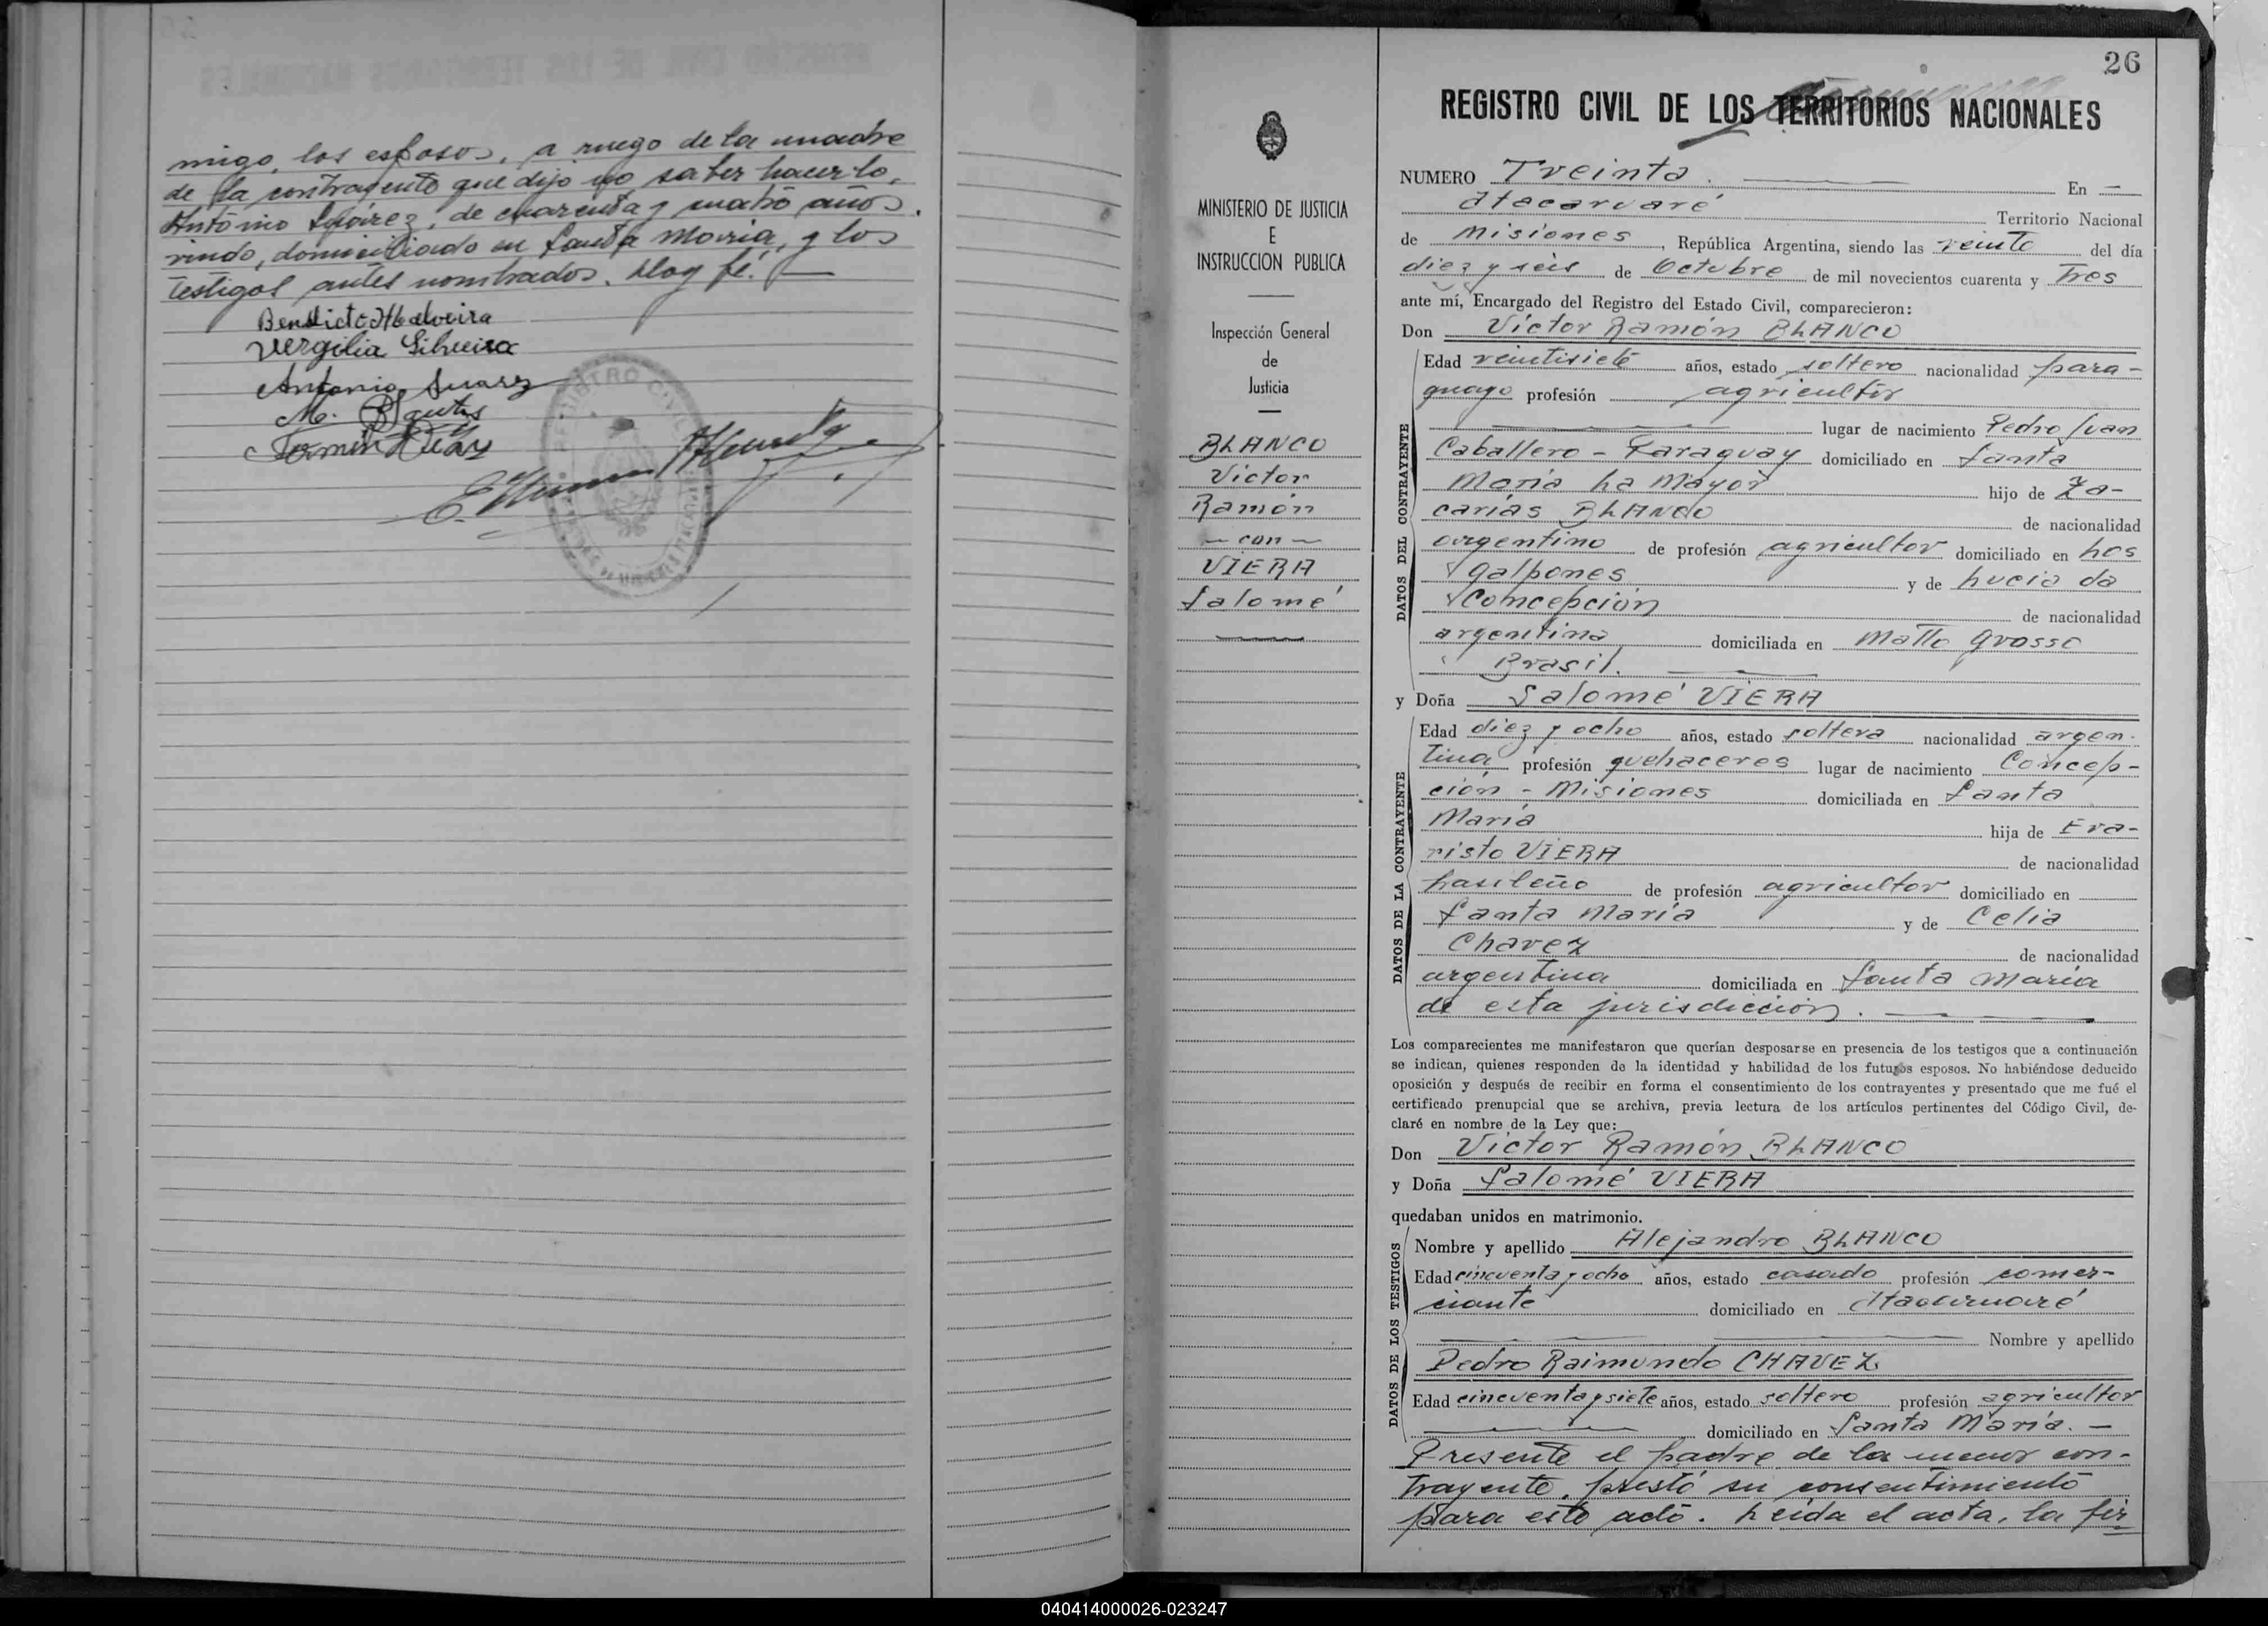 migo, los esposos, a ruego de la madre
de la contrayente que dijo no saber hacerlo,
Antonio Suárez, de cuarenta y cuatro años.
viudo, domiciliado en Santa María, y los
testigos antes nombrados. Doy fé.
Vergilia Silveira
Antonio Suarez
M.
Fermin Diaz
REGISTRO CIVIL
MINISTERIO DE JUSTICIA
E
INSTRUCCION PUBLICA
Inspección General
de
Justicia
BLANCO
Victor
Ramón
- con -
VIERA
Salomé
26
REGISTRO CIVIL DE LOS TERRITORIOS NACIONALES
NUMERO Treinta. En —
Itacaruaré Territorio Nacional
de Misiones, República Argentina, siendo las veinte del día
diez y seis de Octubre de mil novecientos cuarenta y Tres
ante mí, Encargado del Registro del Estado Civil, comparecieron:
Don Victor Ramón BLANCO
DATOS DEL CONTRAYENTE
Edad veintisiete años, estado soltero nacionalidad para-
guayo profesión agricultor
lugar de nacimiento Pedro Juan
Caballero - Paraguay domiciliado en Santa
María La Mayor hijo de Za-
carías BLANCO de nacionalidad
argentino de profesión agricultor domiciliado en Los
galpones y de Lucia da
Concepción de nacionalidad
argentina domiciliada en Matto Grosso
Brasil.
y Doña Salomé VIERA
DATOS DE LA CONTRAYENTE
Edad diez y ocho años, estado soltera nacionalidad argen-
tina profesión quehaceres lugar de nacimiento Concep-
ción - Misiones domiciliada en Santa
María hija de Eva-
risto VIERA de nacionalidad
brasileño de profesión agricultor domiciliado en
Santa María y de Celia
Chavez de nacionalidad
argentina domiciliada en Santa María
de esta jurisdicción.
Los comparecientes me manifestaron que querían desposarse en presencia de los testigos que a continuación
se indican, quienes responden de la identidad y habilidad de los futuros esposos. No habiéndose deducido
oposición y después de recibir en forma el consentimiento de los contrayentes y presentado que me fué el
certificado prenupcial que se archiva, previa lectura de los artículos pertinentes del Código Civil, de-
claré en nombre de la Ley que:
Don Victor Ramón BLANCO
y Doña Salomé VIERA
quedaban unidos en matrimonio.
DATOS DE LOS TESTIGOS
Nombre y apellido Alejandro BLANCO
Edad cincuenta y ocho años, estado casado profesión comer-
ciante domiciliado en Itacaruaré
Nombre y apellido
Pedro Raimundo CHAVEZ
Edad cincuenta y siete años, estado soltero profesión agricultor
domiciliado en Santa María. —
Presente el padre de la menor con-
trayente, prestó su consentimiento
para este acto. Leída el acta, la fir
040414000026-023247